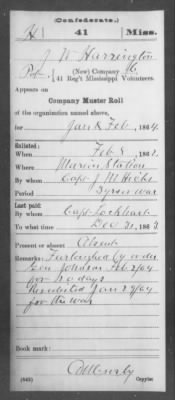 (Confederate.)
H 41 Miss.
J W Harrington
Pvt, (New) Company
41 Reg't Mississippi Volunteers.
Appears on
Company Muster Roll
of the organization named above,
for Jan & Feb, 1864
Enlisted:
When Feb 8, 186
Where Marion Station
By whom Capt J M Hicks
Period 3 years war
Last paid:
By whom Capt Lockhart
To what time Dec 31, 1863
Present or absent Absent
Remarks: Furloughed by order
Gen Johnson Feb 2/64
for days
Reenlisted Jan 29/64
for the war
Book mark:
(642)
Copyist